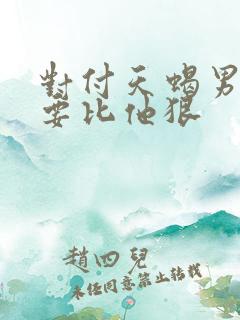 對付天蝎男
要比他狠
趙四兒
未經同意禁止转载